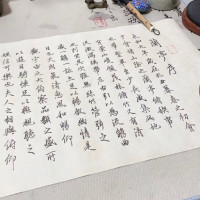 蘭亭序
永和九年歲在癸丑暮春之初會
于會稽山陰之蘭亭脩禊事
也羣賢畢至少長咸集此地
有崇山峻領茂林脩竹又有清
流激湍暎帶左右引以為流觴曲
水列坐其次雖無絲竹管弦之
盛一觴一詠亦足以暢敘幽情
是日也天朗氣清惠風和暢仰
觀宇宙之大俯察品類之盛所
以遊目騁懷足以極視聽之
娛信可樂也夫人之相與俯仰